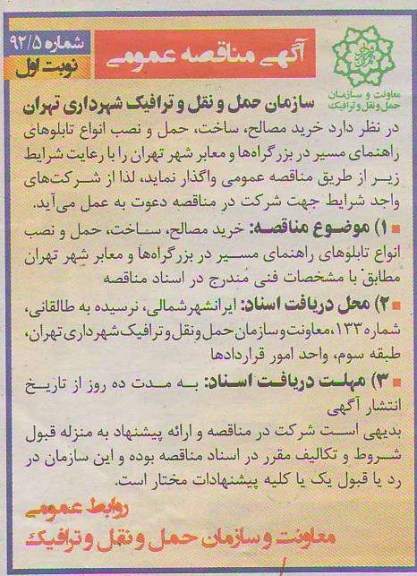 آگهی مناقصه عمومی
شماره ۹۲/۵
نوبت اول
معاونت و سازمان
حمل و نقل و ترافیک
سازمان حمل و نقل و ترافیک شهرداری تهران
در نظر دارد خرید مصالح، ساخت، حمل و نصب انواع تابلوهای
راهنمای مسیر در بزرگراه‌ها و معابر شهر تهران را با رعایت شرایط
زیر از طریق مناقصه عمومی واگذار نماید، لذا از شرکت‌های
واجد شرایط جهت شرکت در مناقصه دعوت به عمل می‌آید.
۱) موضوع مناقصه: خرید مصالح، ساخت، حمل و نصب
انواع تابلوهای راهنمای مسیر در بزرگراه‌ها و معابر شهر تهران
مطابق با مشخصات فنی مندرج در اسناد مناقصه
۲) محل دریافت اسناد: ایرانشهرشمالی، نرسیده به طالقانی،
شماره ۱۳۳، معاونت و سازمان حمل و نقل و ترافیک شهرداری تهران،
طبقه سوم، واحد امور قراردادها
۳) مهلت دریافت اسناد: به مدت ده روز از تاریخ
انتشار آگهی
بدیهی است شرکت در مناقصه و ارائه پیشنهاد به منزله قبول
شروط و تکالیف مقرر در اسناد مناقصه بوده و این سازمان در
رد یا قبول یک یا کلیه پیشنهادات مختار است.
روابط عمومی
معاونت و سازمان حمل و نقل و ترافیک